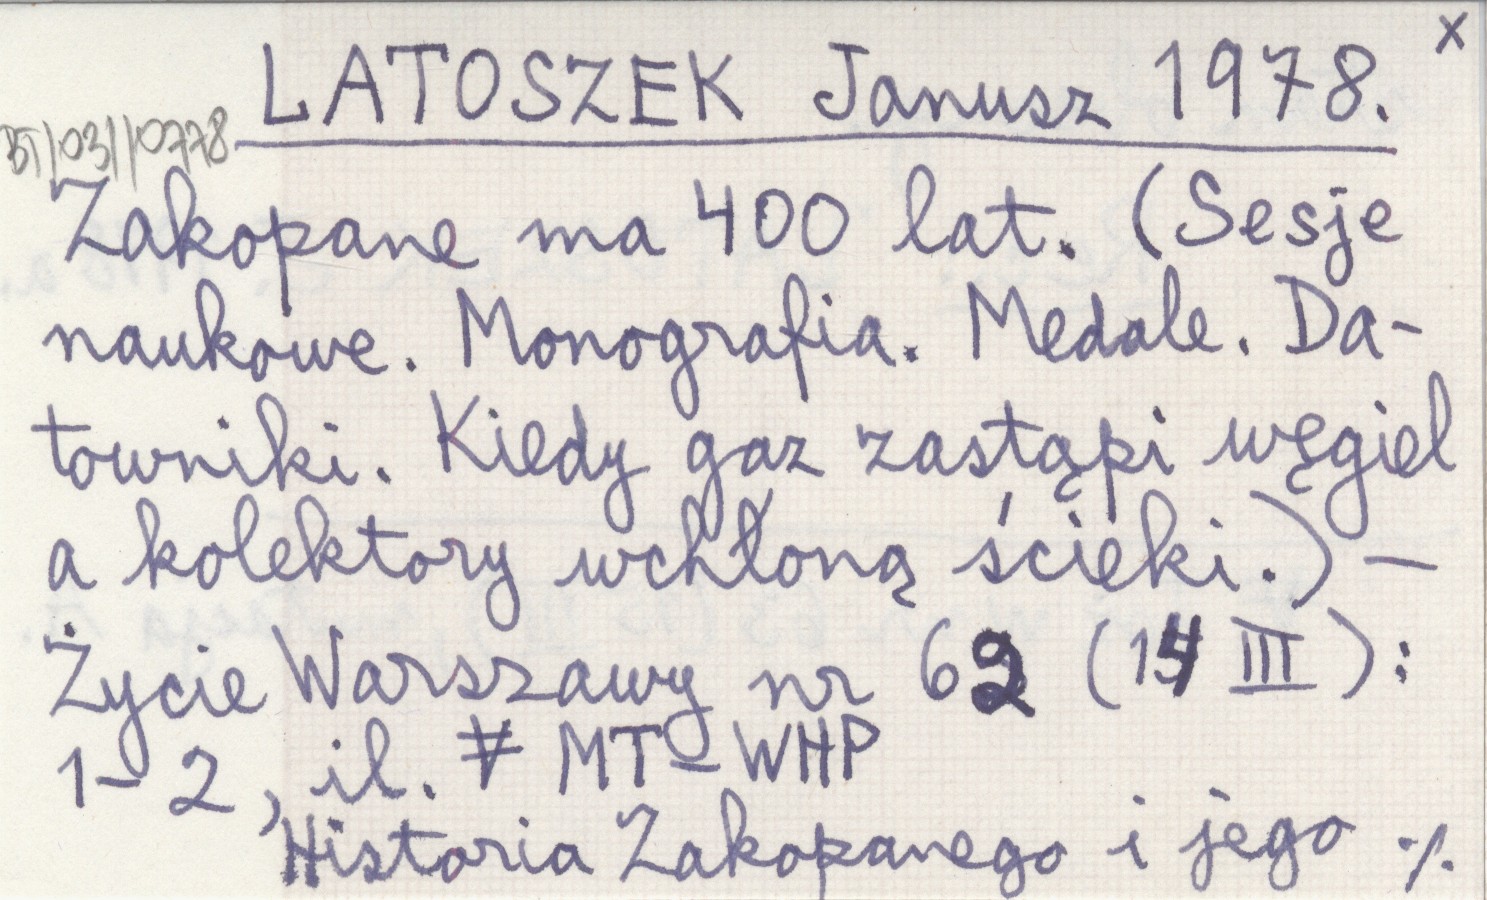 x
LATOSZEK Janusz 1978.
BT/031/0778
Zakopane ma 400 lat. (Sesje
naukowe. Monografia. Medale. Da-
towniki. Kiedy gaz zastąpi węgiel
a kolektory wchłoną ścieki.) —
Życie Warszawy nr 62 (14 III):
1-2, il. # MT-WHP
Historia Zakopanego i jego ./.